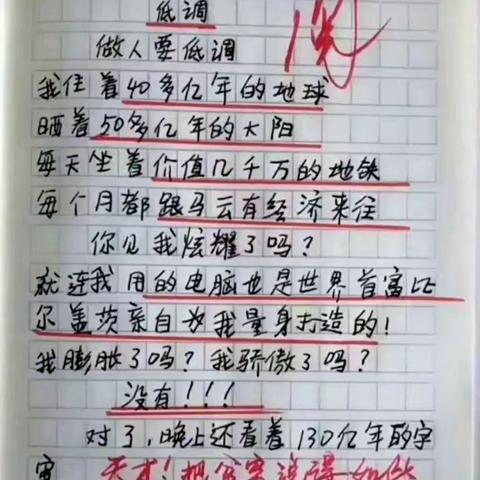 低调
做人要低调
我住着40多亿年的地球
晒着50多亿年的太阳
每天坐着价值几千万的地铁
每个月都跟马云有经济来往
你见我炫耀了吗?
就连我用的电脑也是世界首富比
尔盖茨亲自为我量身打造的!
我膨胀了吗?我骄傲了吗?
没有!!!
对了,晚上还看着130亿年的宇
宙
天才!把穷说得如此